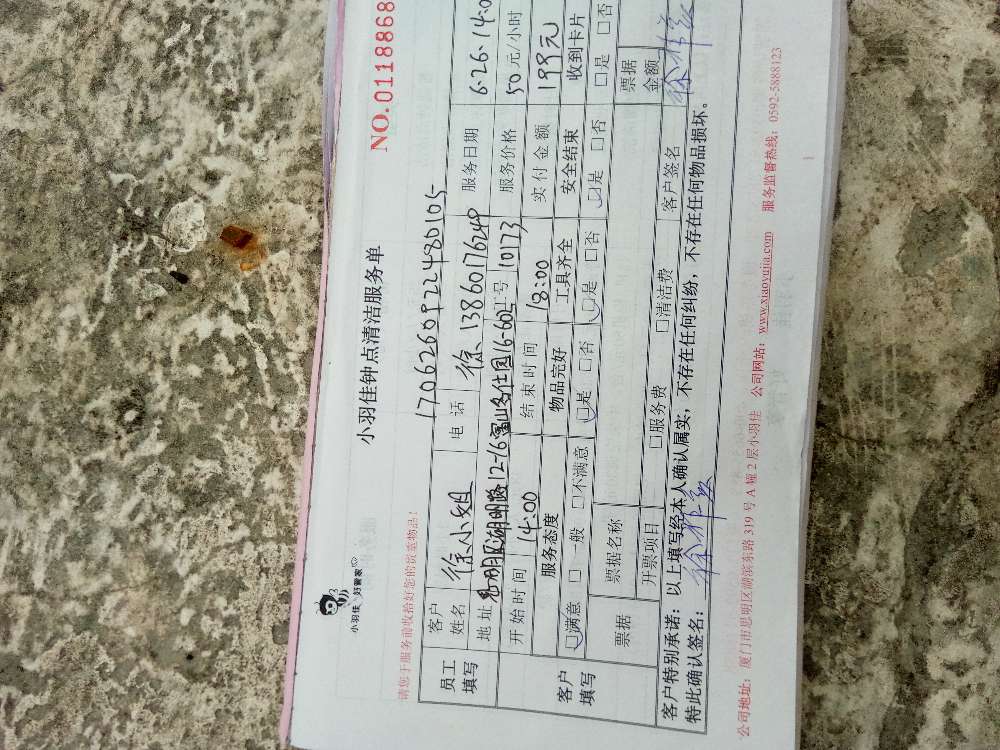 小羽佳 好管家
小羽佳钟点清洁服务单
NO.0118868
请您于服务前收拾好您的贵重物品!
1706260922480105
员工填写
客户姓名 徐小姐 电话 徐 13860176248 服务日期 6.26.14:0
地址 思明区湖明路12-16富山多仕园16-601号 10173 服务价格 50元/小时
客户填写
开始时间 14:00 结束时间 18:00 实付金额 199元
服务态度 物品完好 工具齐全 安全结束 收到卡片
□满意 □一般 □不满意 □是 □否 □是 □否 □是 □否 □是 □否
票据 票据名称 票据金额
开票项目 □服务费 □清洁费 客户签名
客户特别承诺:以上填写经本人确认属实,不存在任何纠纷,不存在任何物品损坏。
特此确认签名:
公司地址:厦门市思明区湖滨东路319号A幢2层小羽佳 公司网站:www.xiaoyujia.com 服务监督热线:0592-5888123
1